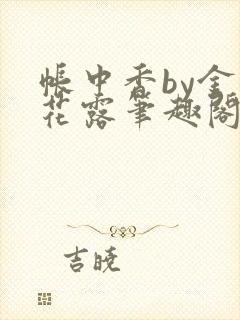 帐中香by金
花露笔趣阁
吉晓